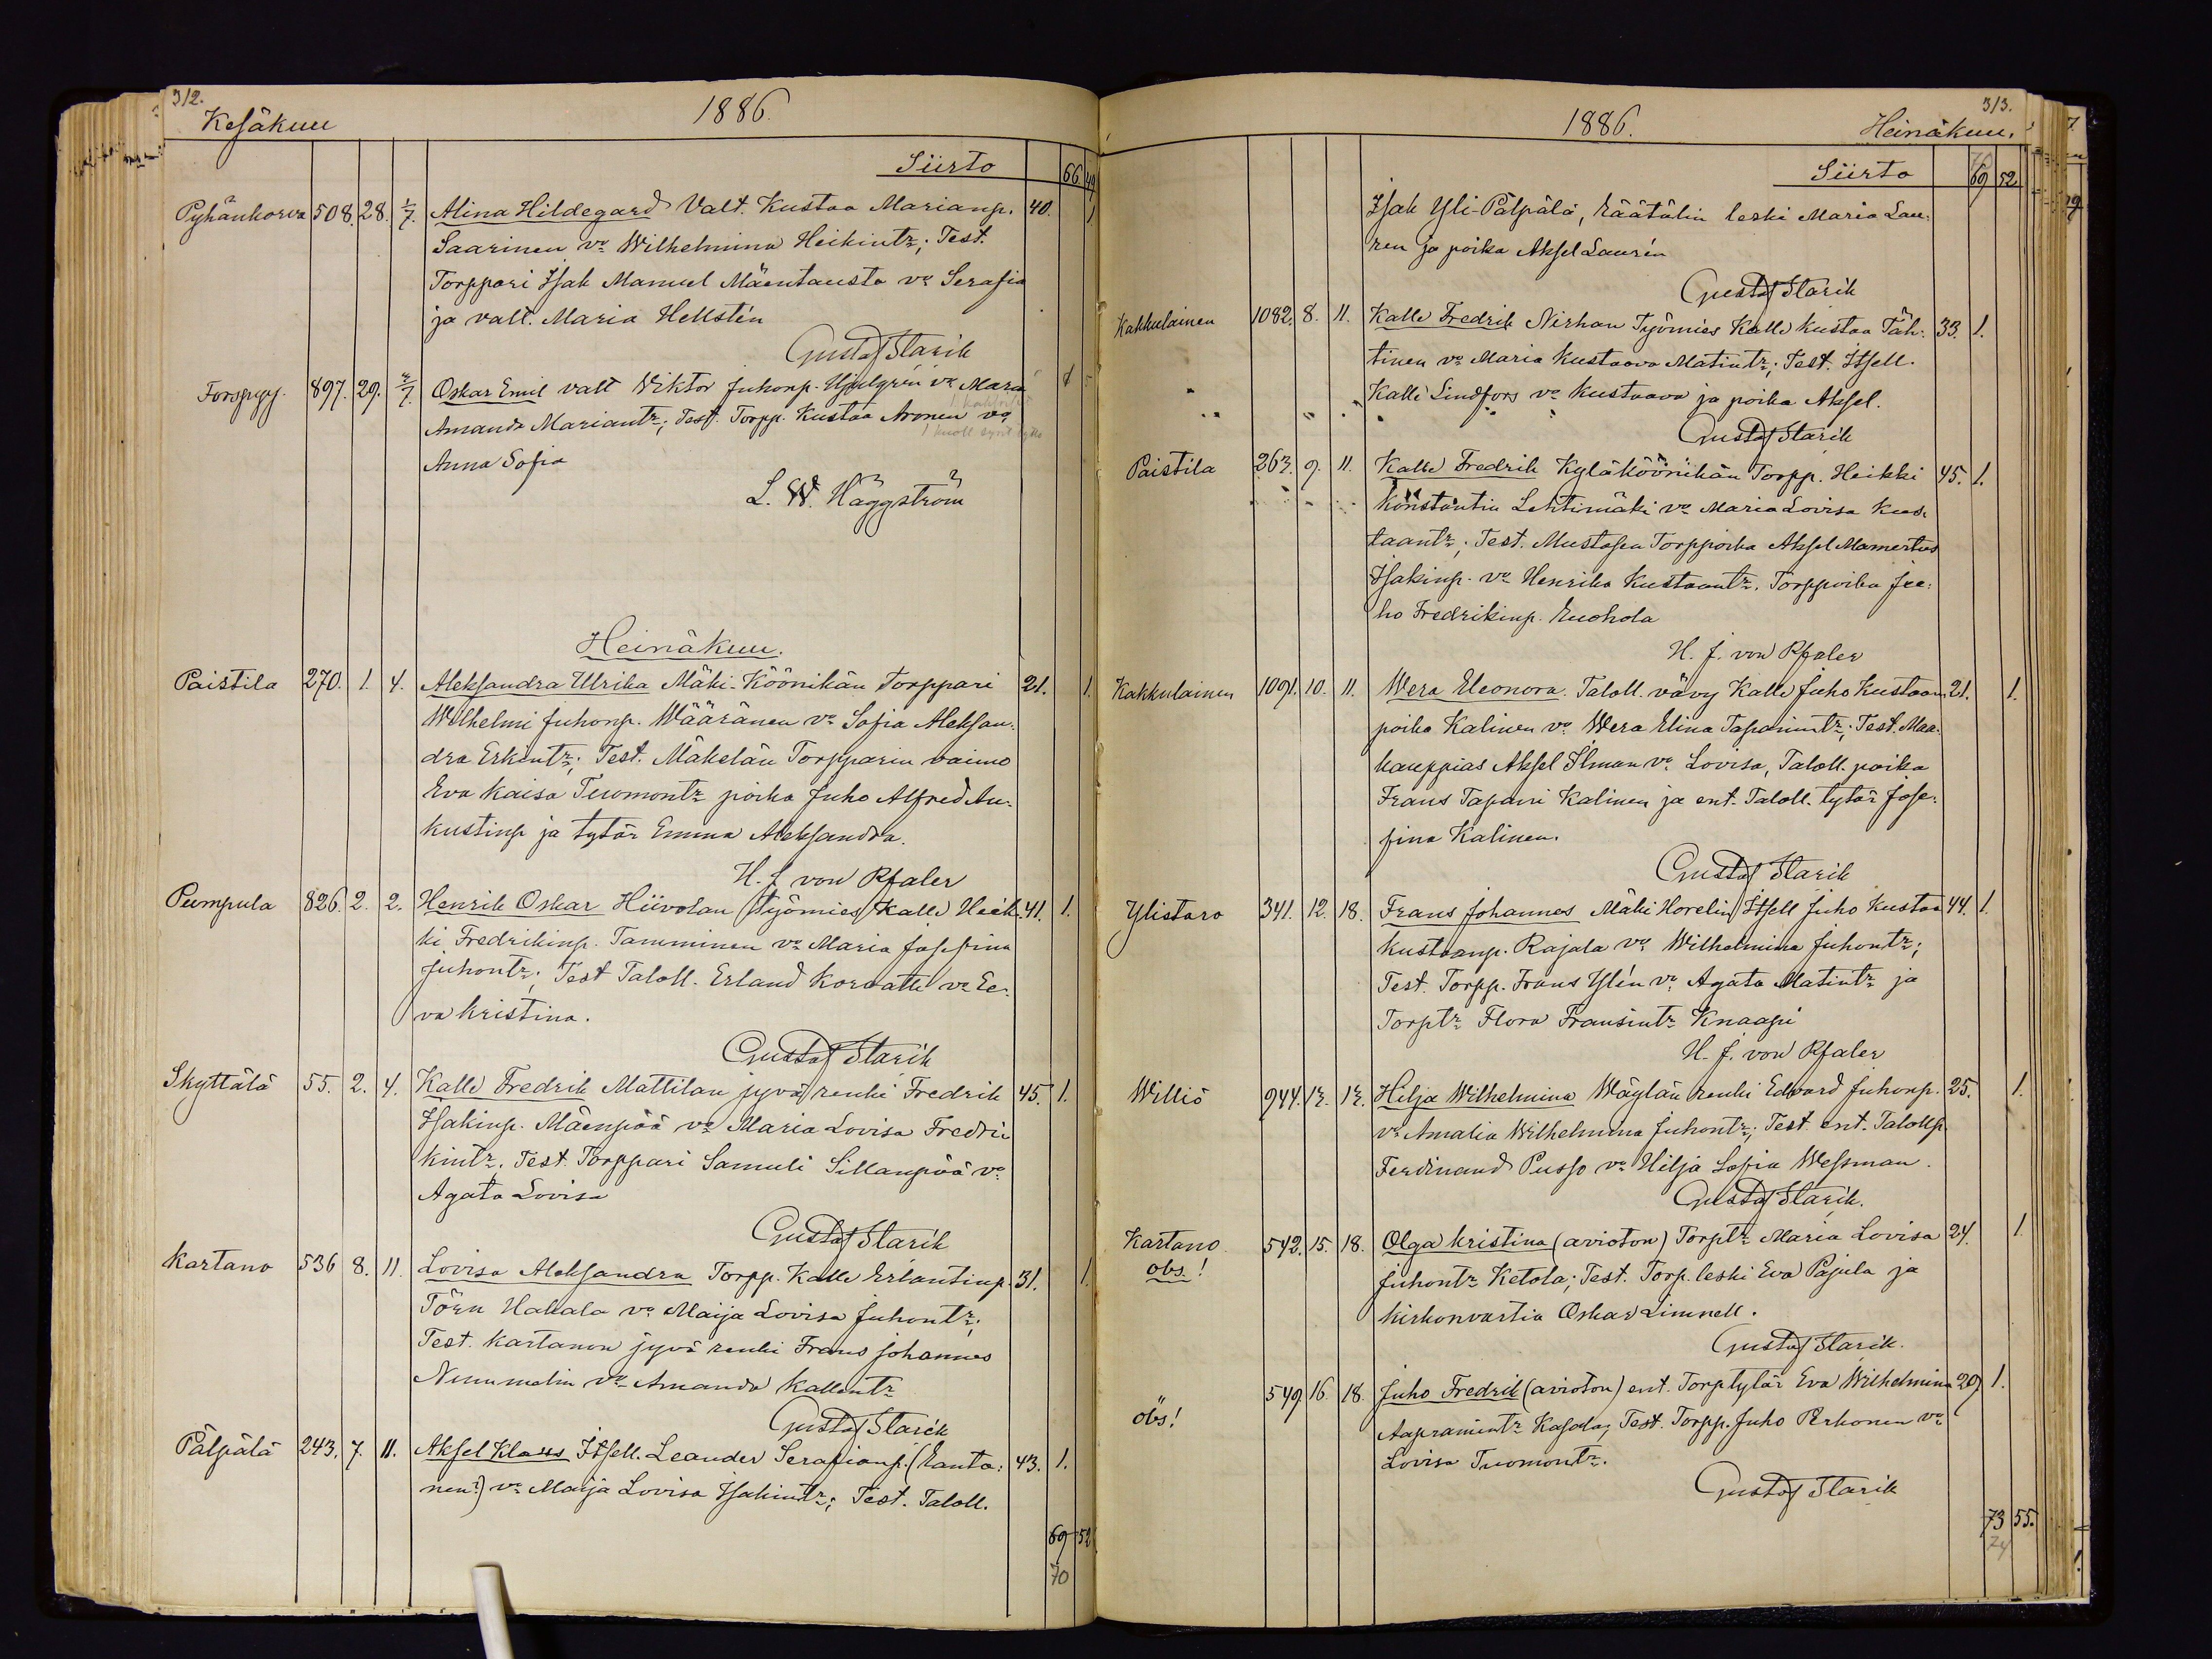 312.
Kesäkuu
1886.
Siirto 66 49
Pyhänkorva 508. 28. 1/7. Alina Hildegard Valt. Kustaa Marianp. 40. 1
Saarinen vo Wilhelmina Heikintr; Test.
Torppari Isak Manuel Mäentausta vo Serafia
ja valt. Maria Hellstén
Gustaf Starik
Torppy. 897. 29. Oskar Emil valt Wiktor Juhonp. Hjulgrén vo Maria
Amanda Mariantr; Test. Torpp. Kustaa Aronen vo
Anna Sofia
L. W. Häggström
Heinäkuu.
Paistila 270. 1. 4. Aleksandra Ulrika Mäki-Köönikän Torppari 21. 1.
Wilhelmi Juhonp. Wääränen vo Sofia Aleksan-
dra Erkintr; Test. Mäkelän Torpparin vaimo
Eva Kaisa Tuomontr poika Juho Alfred Au-
kustinp ja tytär Emma Aleksandra.
H. J. von Pfaler
Pumpula 826. 2. 2. Henrik Oskar Hiivolan Työmies Kalle Heik- 41. 1.
ki Fredrikinp. Tamminen vo Maria Josefina
Juhontr; Test Taloll. Erland Korvatti vo Ee-
va Kristina.
Gustaf Starik
Skyttälä 55. 2. 4. Kalle Fredrik Mattilan jyvä renki Fredrik 45. 1.
Isakinp. Mäenpää vo Maria Lovisa Fredri
kintr; Test. Torppari Samuli Sillanpää vo
Agata Lovisa
Gustaf Starik
Kartano 536 8. 11. Lovisa Aleksandra Torpp. Kalle Erlantinp. 31. 1.
Törn Hakala vo Maija Lovisa Juhontr;
Test. Kartanon jyvä renki Frans Johannes
Nummelin vo Amanda Kallentr
Gustaf Starik
Pälpälä 243. 7. 11. Aksel Klaus Itsell. Leander Serafianp. (Ranta- 43. 1.
nen?) vo Maija Lovisa Isakintr; Test. Taloll.
69 52
70
313.
1886. Heinäkuu.
Siirto 69 52
Isak Yli-Pälpälä, Räätälin leski Maria Lau-
ren ja poika Aksel Laurén
Gustaf Starik
Kakkulainen 1082. 8. 11. Kalle Fredrik Nirhan Työmies Kalle Kustaa Täh- 33. 1.
tinen vo Maria Kustaava Matintr; Test. Itsell.
Kalle Lindfors vo Kustaava ja poika Aksel.
Gustaf Starik
Paistila 263. 9. 11. Kalle Fredrik Kyläköönikän Torpp. Heikki 45. 1.
Konstantin Lehtimäki vo Maria Lovisa Kus-
taantr; Test. Mustapen Torppoika Aksel Mamertus
Isakinp. vo Henrika Kustaantr. Torppoika Ju-
ho Fredrikinp. Ruohola
H. J. von Pfaler
Kakkulainen 1091. 10. 11. Wera Eleonora. Taloll. vävy Kalle Juho Kustaan 21. 1.
poika Kalinen vo Wera Elina Tapanintr; Test. Maa-
kauppias Aksel Ilman vo Lovisa, Taloll. poika
Frans Tapani Kalinen ja ent. Taloll. tytär Jose-
fina Kalinen.
Gustaf Starik
Ylistaro 341. 12. 18. Frans Johannes Mäki Horelin Itsell Juho Kustaa 44. 1.
Kustaanp. Rajala vo Wilhelmina Juhontr;
Test. Torpp. Frans Ylén vo Agata Matintr ja
Torptr Flora Fransintr Knaapi
H. J. von Pfaler
Williö 944. 13. 13. Hilja Wilhelmina Wäylän renki Edvard Juhonp. 25. 1.
vo Amalia Wilhelmina Juhontr; Test. ent. Talollp
Ferdinand Pusso vo Hilja Sofia Wessman.
Gustaf Starik.
Kartano 542. 15. 18. Olga Kristina (avioton) Torptr Maria Lovisa 24. 1.
obs! Juhontr Ketola; Test. Torp. leski Eva Pajula ja
kirkonvartia Oskar Limnell.
Gustaf Starik.
549. 16. 18. Juho Fredrik (avioton) ent. Torptytär Eva Wilhelmina 29 1.
obs! Aapramintr Kasala; Test. Torpp. Juho Perhonen vo
Lovisa Tuomontr.
Gustaf Starik
73 55.
74